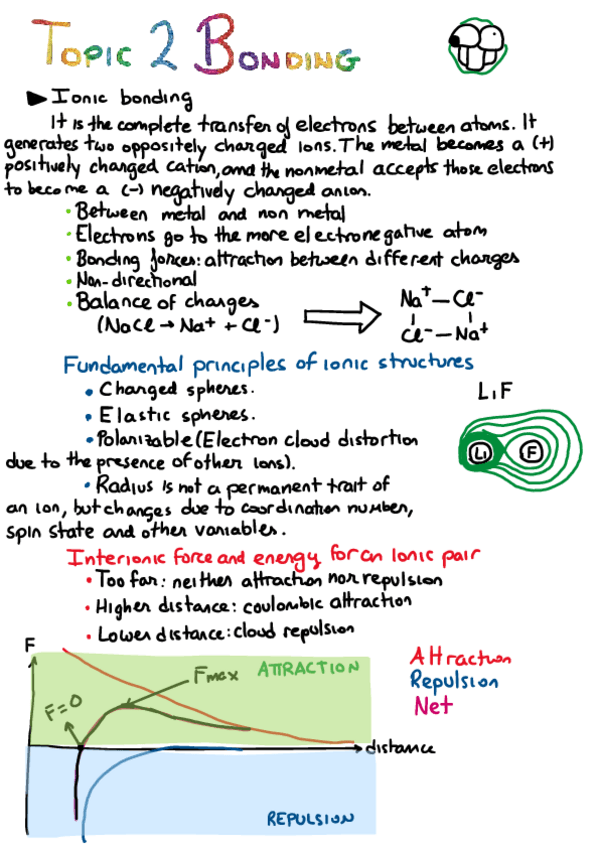 Topic 2 Bonding
▶ Ionic bonding
It is the complete transfer of electrons between atoms. It
generates two oppositely charged ions. The metal becomes a (+)
positively changed cation, and the nonmetal accepts those electrons
to become a (-) negatively changed anion.
• Between metal and non metal
• Electrons go to the more electronegative atom
• Bonding forces: attraction between different charges
• Non-directional
• Balance of changes
(NaCl → Na+ + Cl-)
Na+ — Cl-
Cl- — Na+
Fundamental principles of ionic structures
• Changed spheres.
• Elastic spheres.
• Polarizable (Electron cloud distortion
due to the presence of other ions).
• Radius is not a permanent trait of
an ion, but changes due to coordination number,
spin state and other variables.
LiF
Li F
Interionic force and energy for an ionic pair
• Too far: neither attraction nor repulsion
• Higher distance: coulombic attraction
• Lower distance: cloud repulsion
F
ATTRACTION
Fmax
F=0
distance
REPULSION
Attraction
Repulsion
Net